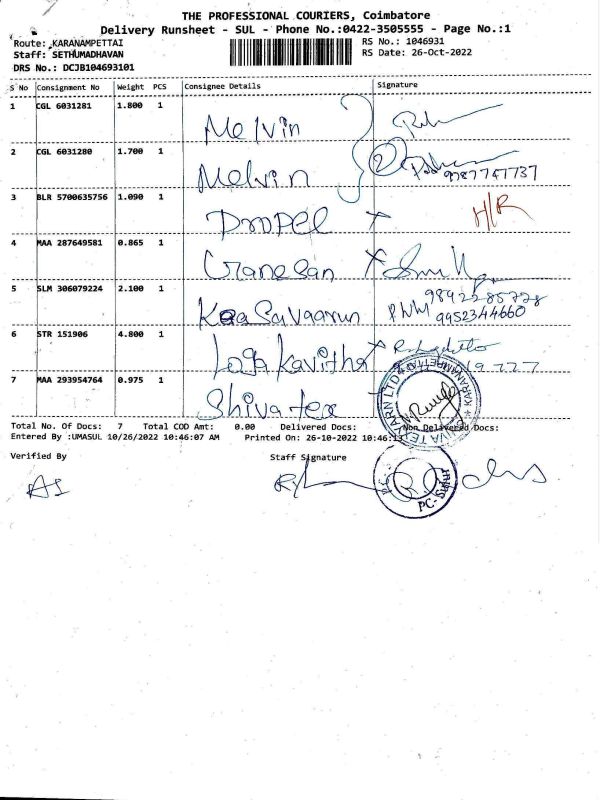 THE PROFESSIONAL COURIERS, Coimbatore
Delivery Runsheet - SUL - Phone No.:0422-3505555 - Page No.:1
Route: KARANAMPETTAI
RS No.: 1046931
Staff: SETHUMADHAVAN
RS Date: 26-Oct-2022
DRS No.: DCJB104693101
S No Consignment No Weight PCS Consignee Details Signature
1 CGL 6031281 1.800 1 Melvin
2 CGL 6031280 1.700 1 Melvin 2
9787747737
3 BLR 5700635756 1.090 1 Propel H/R
4 MAA 287649581 0.865 1 Ganesan
5 SLM 306079224 2.100 1 Kesavaarun
9952344660
6 STR 151906 4.800 1 Loga Kavitha
7 MAA 293954764 0.975 1 Shivatex
Total No. Of Docs: 7 Total COD Amt: 0.00 Delivered Docs: Non Delivered Docs:
Entered By :UMASUL 10/26/2022 10:46:07 AM Printed On: 26-10-2022 10:46:
Verified By Staff Signature
PC-